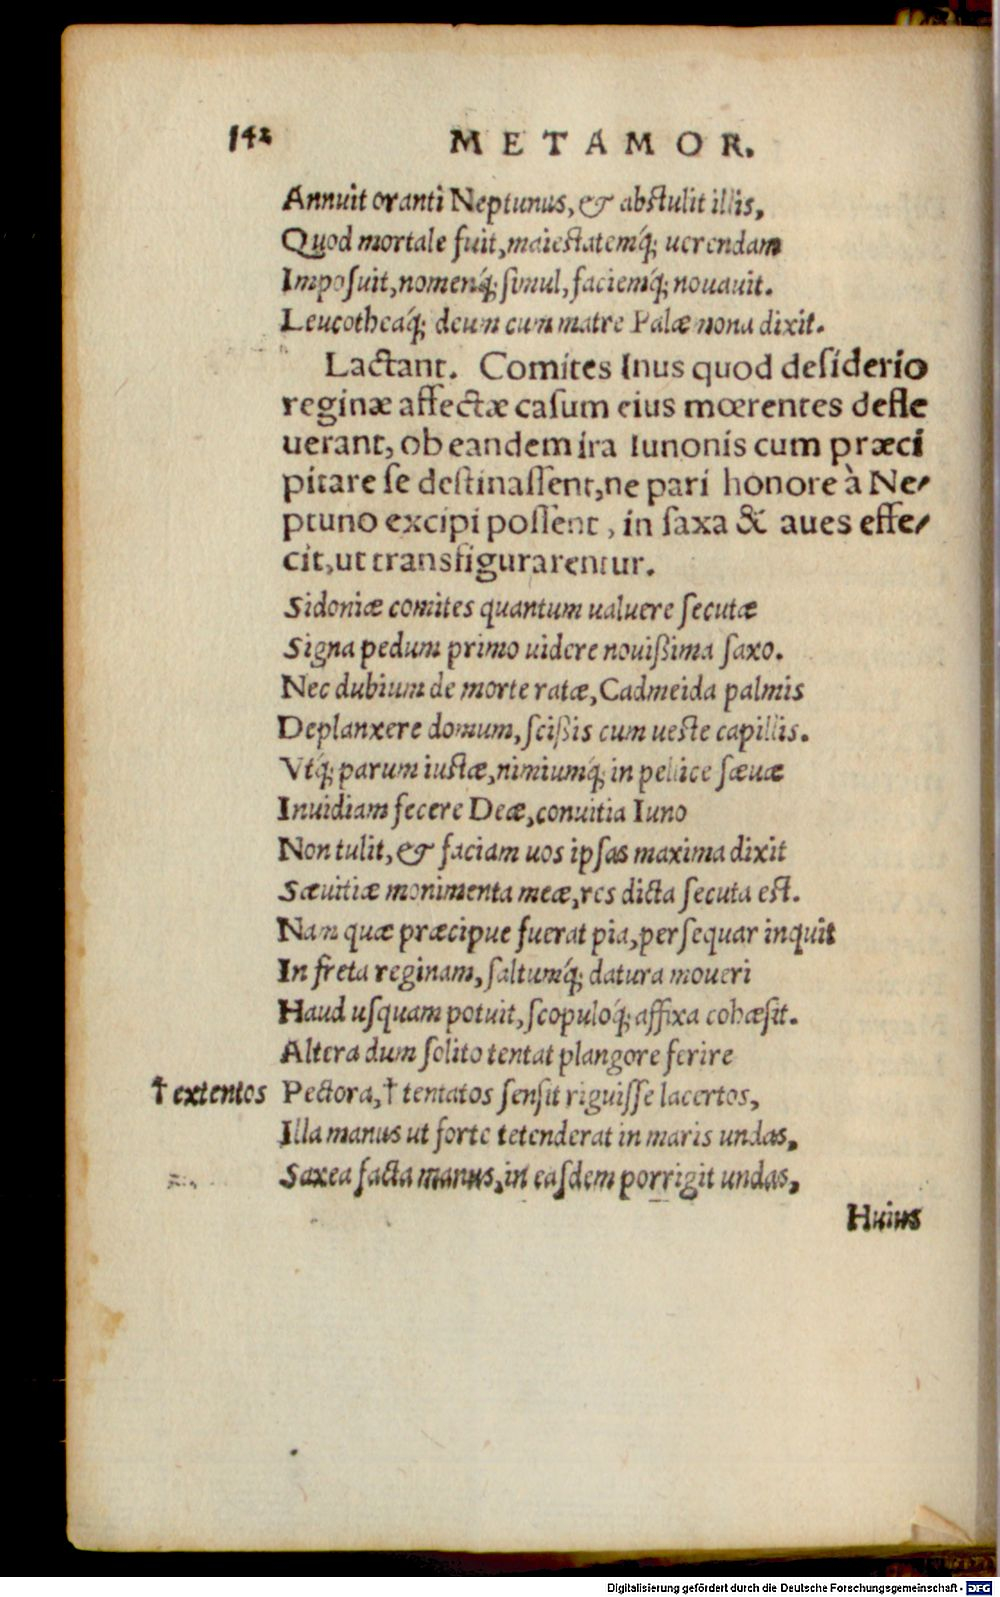 142 METAMOR.
Annuit oranti Neptunus, & abstulit illis,
Quod mortale fuit, maiestatemq́; uerendam
Imposuit, nomenq́; simul, faciemq́; nouauit.
Leucotheaq́; deum cum matre Palæmona dixit.
Lactant. Comites Inus quod desiderio
reginæ affectæ casum eius mœrentes defle
uerant, ob eandem ira Iunonis cum præci
pitare se destinassent, ne pari honore à Ne-
ptuno excipi possent, in saxa & aues effe-
cit, ut transfigurarentur.
Sidoniæ comites quantum ualuere secutæ
Signa pedum primo uidere nouißima saxo.
Nec dubium de morte ratæ, Cadmeida palmis
Deplanxere domum, scißis cum ueste capillis.
Vtq́; parum iustæ, nimiumq́; in pellice sæuæ
Inuidiam fecere Deæ, conuitia Iuno
Non tulit, & faciam uos ipsas maxima dixit
Sæuitiæ monimenta meæ, res dicta secuta est.
Nam quæ præcipue fuerat pia, persequar inquit
In freta reginam, saltumq́; datura moueri
Haud usquam potuit, scopuloq́; affixa cohæsit.
Altera dum solito tentat plangore ferire
† extentos Pectora, † tentatos sensit riguisse lacertos,
Illa manus ut forte tetenderat in maris undas,
Saxea facta manus, in easdem porrigit undas,
Huius
Digitalisierung gefördert durch die Deutsche Forschungsgemeinschaft - DFG